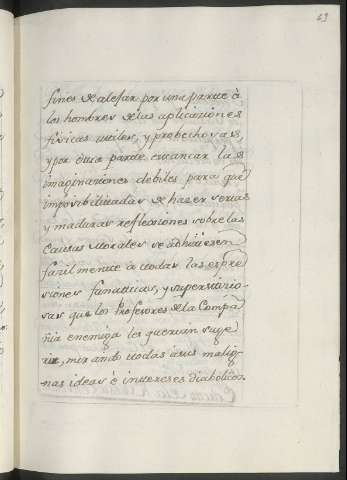 63
fines de alejar por una parte à
los hombres de las aplicaciones
fisicas utiles, y probechosas,
y por otra parte encancar las
imaginaciones debiles para que
imposibilitadas de hazer serias
y maduras reflecsiones sobre las
causas Morales se adhiriesen
fazilmente à todas las espre
siones fanatticas, y superstitio-
sas que los Profesores de la Compa
ñia enemiga les querian suge
rir, mirando todas à sus malig-
nas ideas è intereses diabolicos.